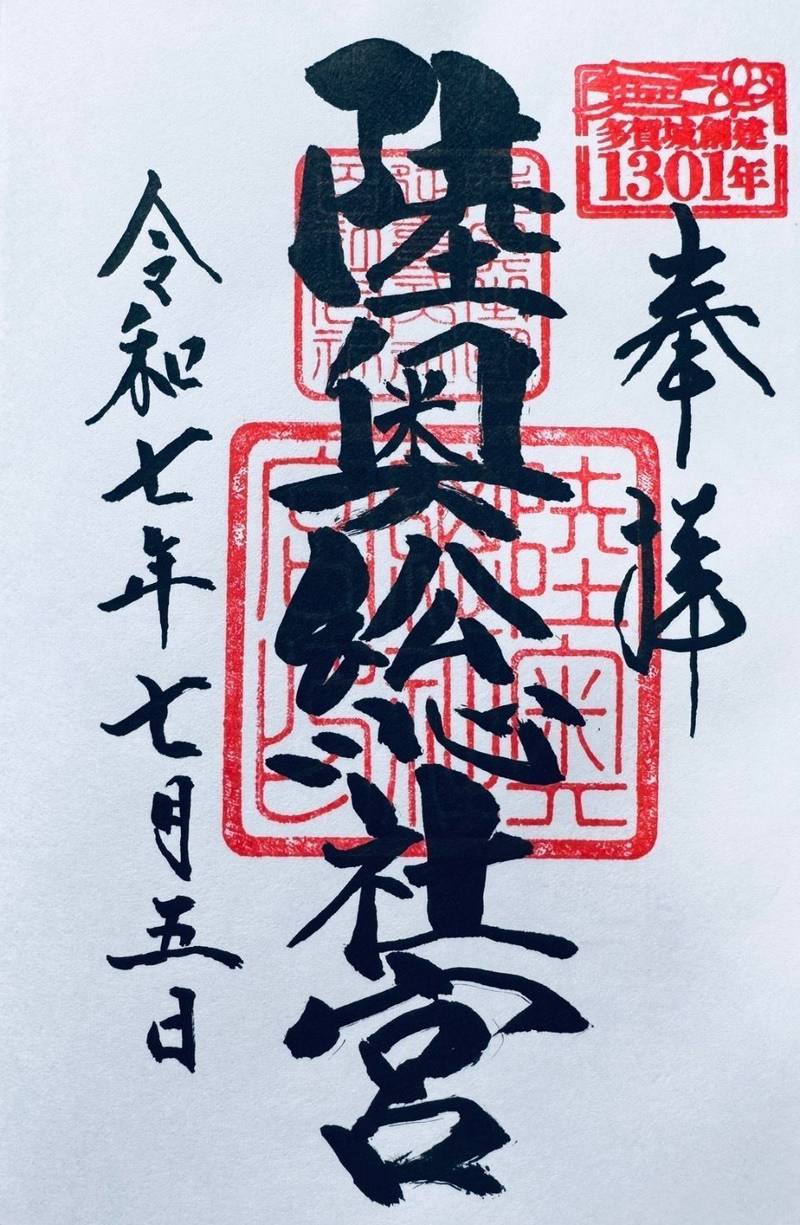 多賀城創建
1301年
奉拝
陸奥総社宮
令和七年七月五日